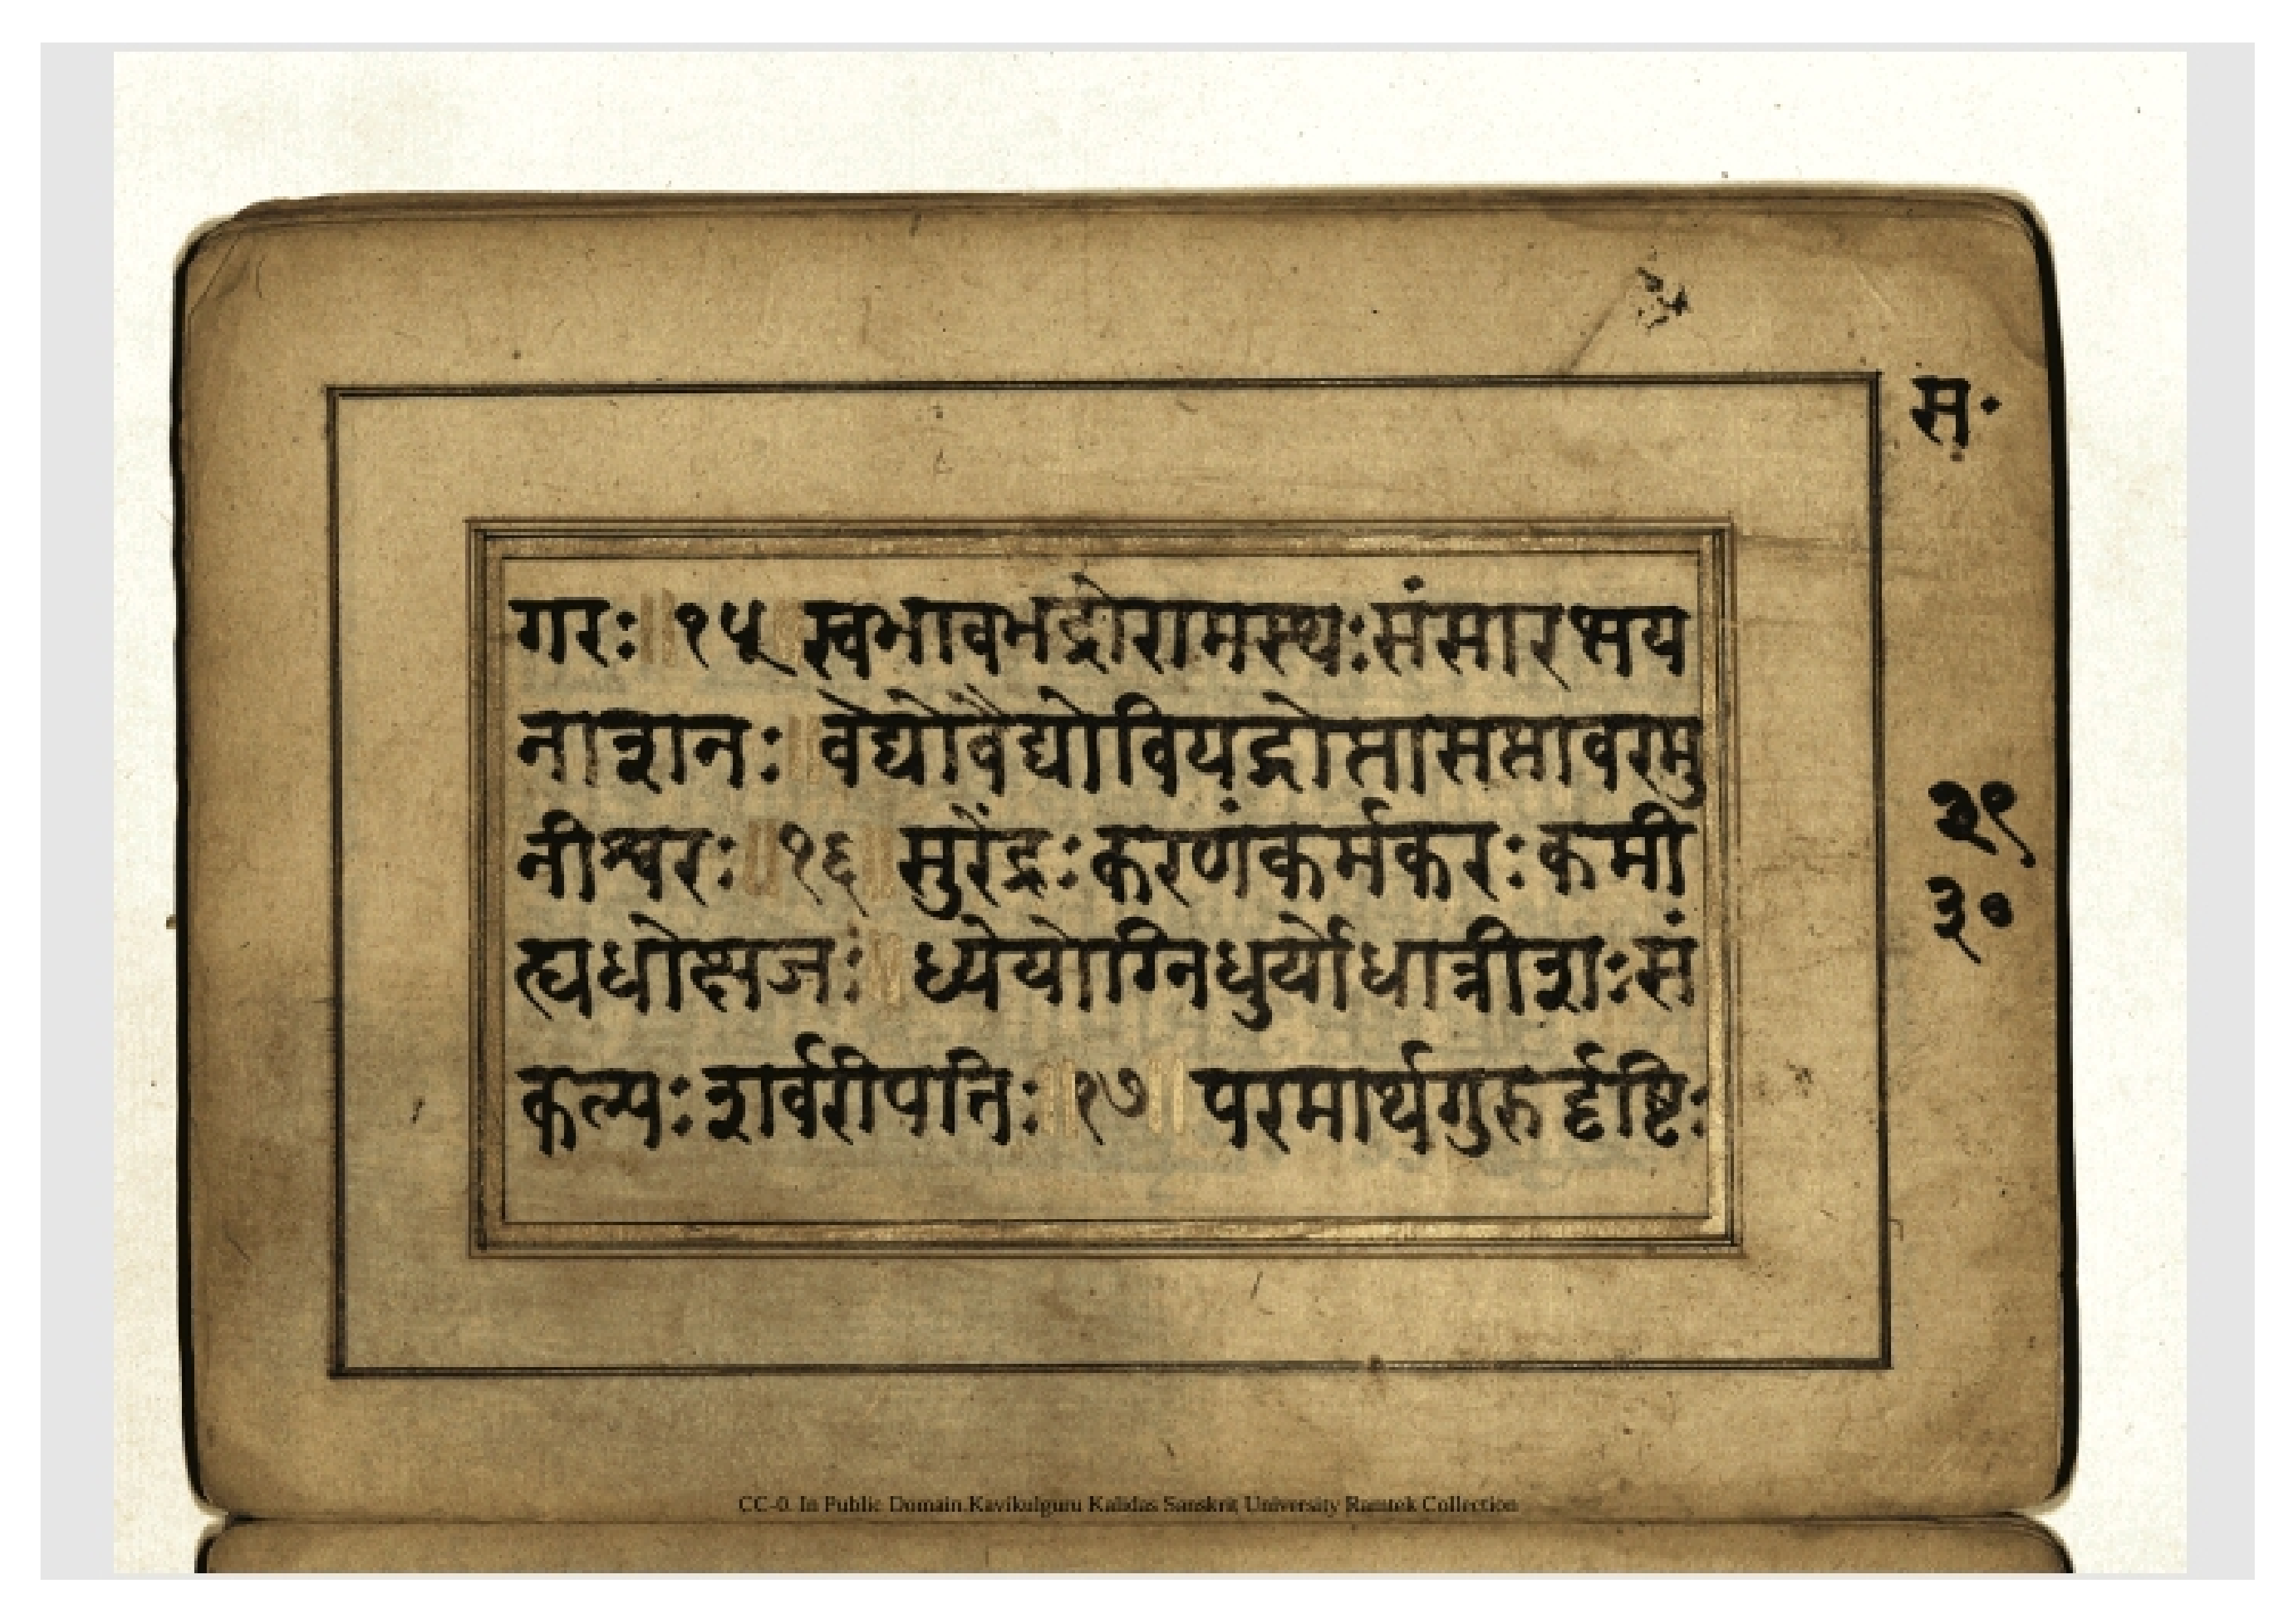 स·
गरः॥१५॥स्वभावभद्रोरामस्थःसंसारभय
नाशनः॥वेद्योवैद्योवियद्गोप्तासप्तावरमु
नीश्वरः॥१६॥सुरेंद्रःकरणंकर्मकरःकर्मी
त्द्यधोक्षजः॥ध्येयोग्निधुर्योधात्रीशःसं
कल्पःशर्वरीपतिः॥१७॥परमार्थगुरुर्दृष्टिः
३०
CC-0. In Public Domain.Kavikulguru Kalidas Sanskrit University Ramtek Collection